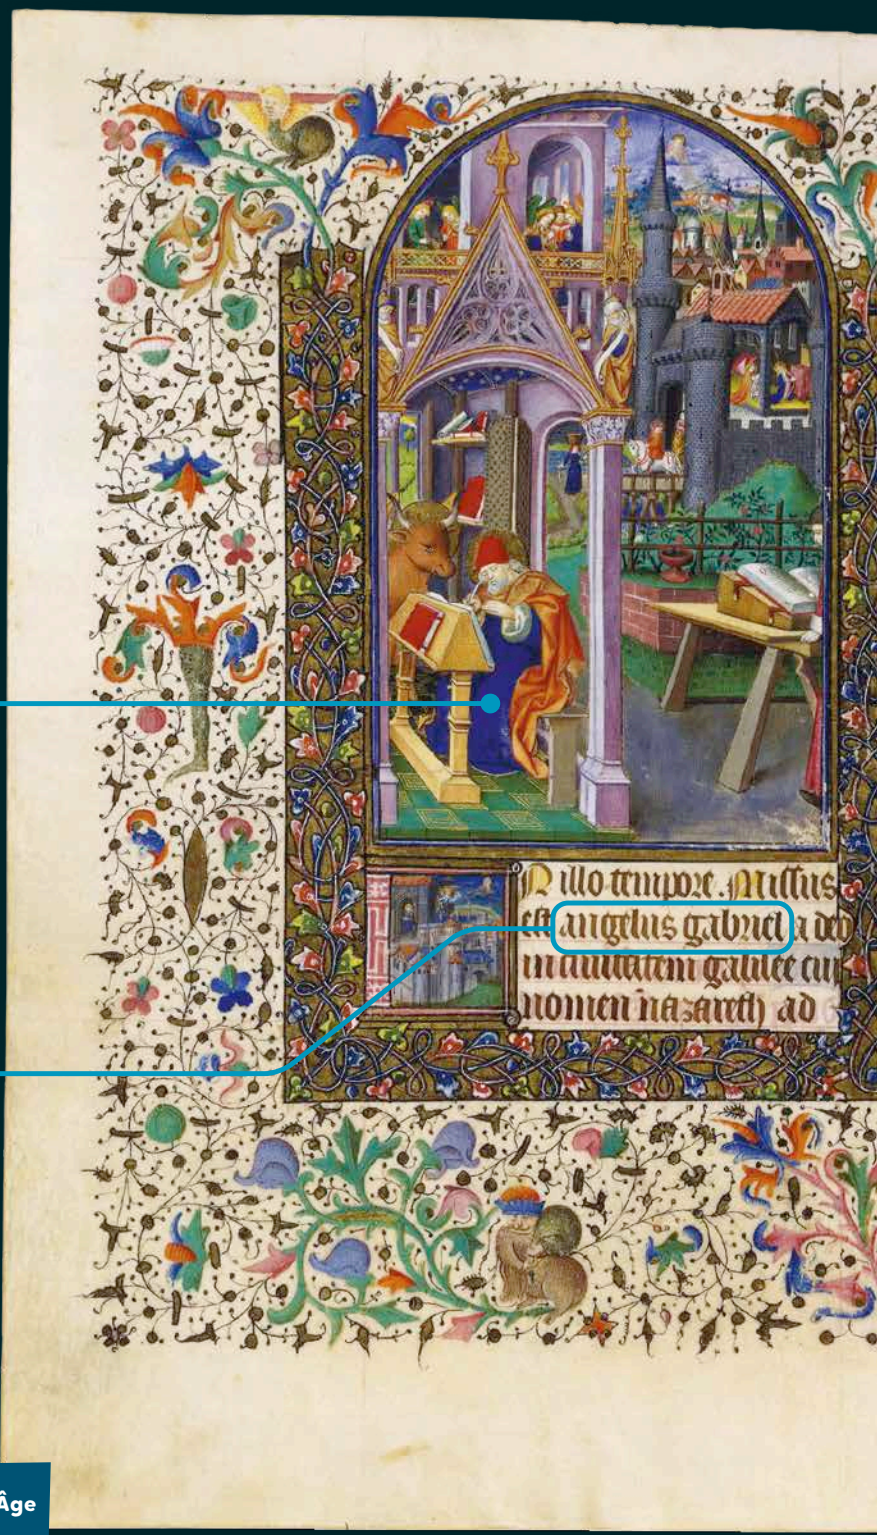 In illo tempore. Missus
est angelus gabriel a deo
in ciuitatem galilee cui
nomen nazareth ad
Âge